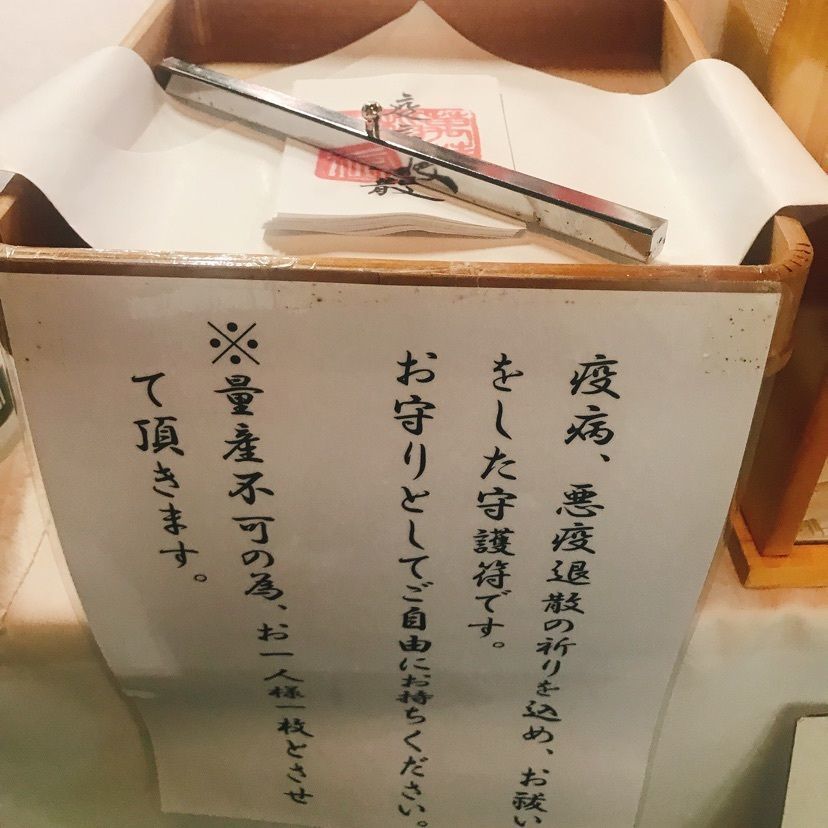 疫病、悪疫退散の祈りを込め、お祓い
をした守護符です。
お守りとしてご自由にお持ちください。
※量産不可の為、お一人様一枚とさせ
て頂きます。